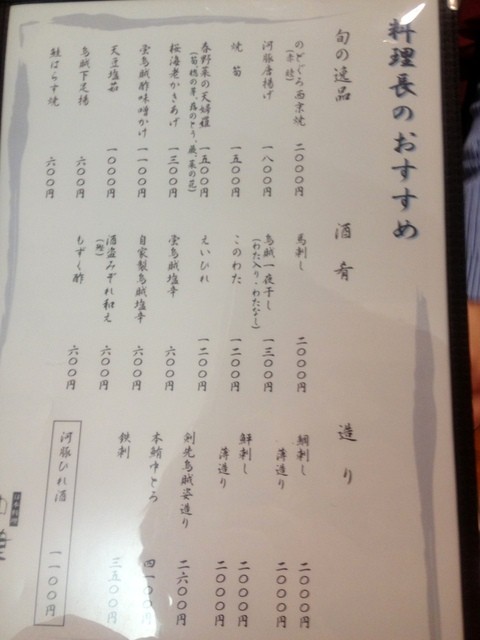 料理長のおすすめ
旬の逸品
のどぐろ西京焼 二〇〇〇円
河豚唐揚げ 一八〇〇円
焼筍 一五〇〇円
春野菜の天婦羅 一五〇〇円
桜海老かきあげ 一三〇〇円
蛍烏賊酢味噌かけ 一一〇〇円
天豆塩茹 一〇〇〇円
烏賊下足揚 六〇〇円
鮭はらす焼 六〇〇円
酒肴
馬刺し 二〇〇〇円
烏賊一夜干し
(わた入り・わたなし) 一三〇〇円
このわた 一二〇〇円
えいひれ 一二〇〇円
蛍烏賊塩辛 六〇〇円
自家製烏賊塩辛 六〇〇円
酒盗みぞれ和え
(鮑) 六〇〇円
もずく酢 六〇〇円
造り
鯛刺し 二〇〇〇円
薄造り 二〇〇〇円
鮮刺し 二〇〇〇円
薄造り 二〇〇〇円
剣先烏賊姿造り 二六〇〇円
本鮪中とろ 四一〇〇円
鉄刺 三五〇〇円
河豚ひれ酒 一一〇〇円